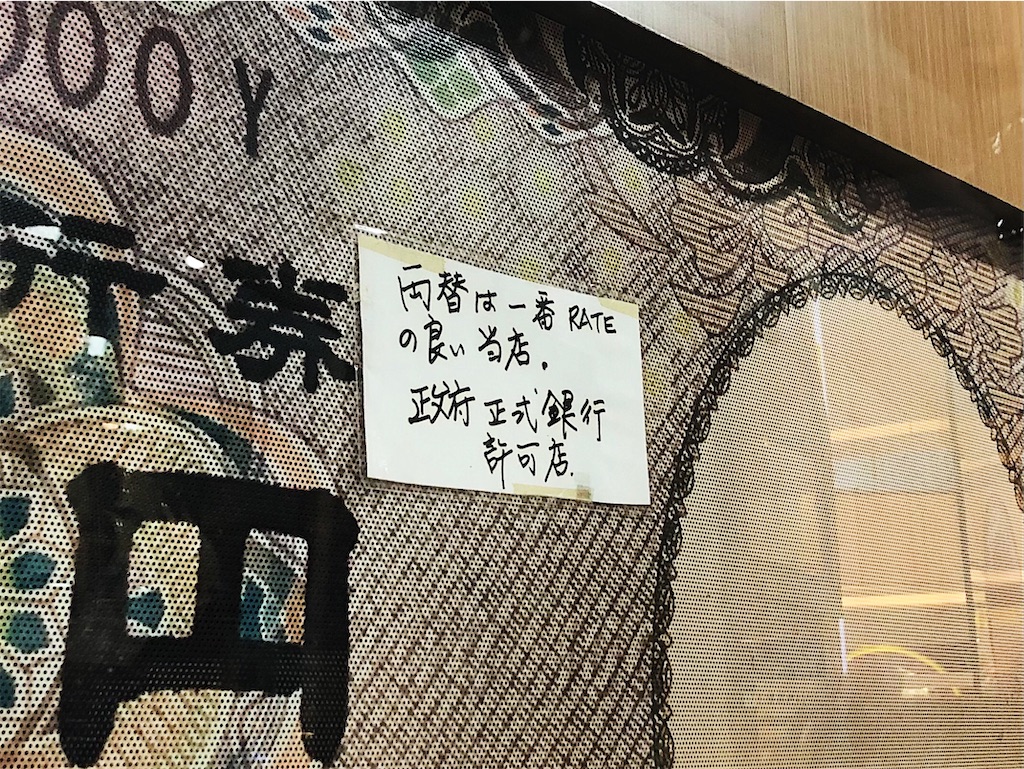 000 Y
行券
円
両替は一番 RATE
の良い当店.
政府 正式銀行
許可店.